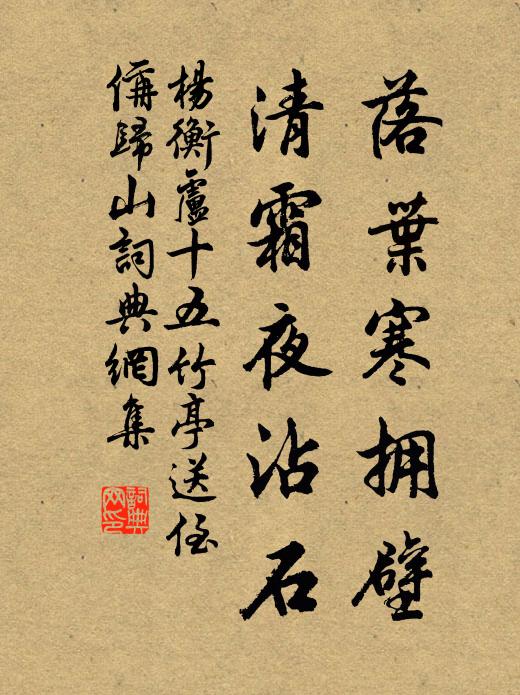 落葉寒拥壁
清霜夜沾石
楊衡盧十五竹亭送侄
偁歸山詞典網集
詞典
网印